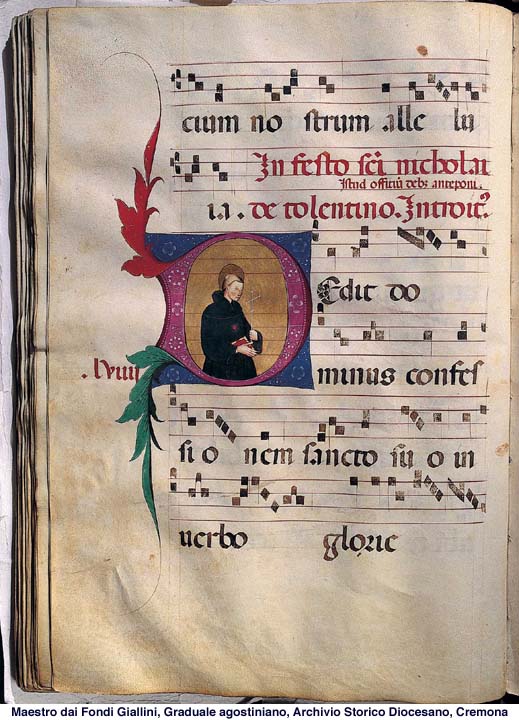 cium no strum alle lu
In festo sci nicholai
Istud offitiū debȝ anteponi.
i.a. de tolentino. Introitꝰ
Edit do
.lviiii
minus confes
si o nem sancto su o in
uerbo glorie
Maestro dai Fondi Giallini, Graduale agostiniano, Archivio Storico Diocesano, Cremona